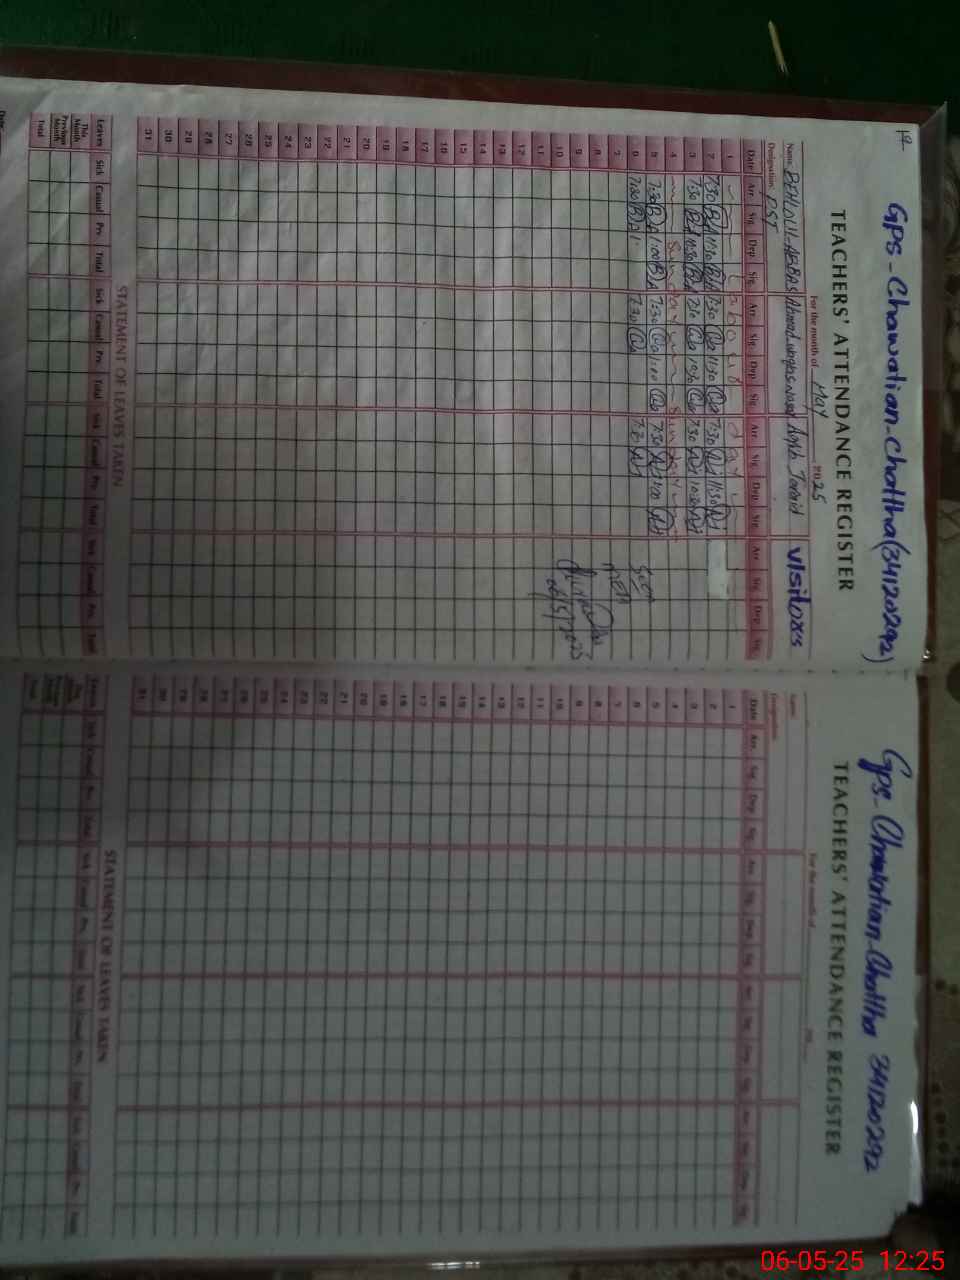 19
GPS-Chawatian-Chattha(34120292)
TEACHERS' ATTENDANCE REGISTER
For the month of May 2025
Name: BEHLOUL-AKBAR Ahmad Aqib Tavarid visitors
Designation: PST
Date Arr. Sig. Dep. Sig. Arr. Sig. Dep. Sig. Arr. Sig. Dep. Sig. Arr. Sig. Dep. Sig.
1 Labour day
2 7:30 11:30 7:30 11:30 7:30 11:30
3 7:30 10:30 7:30 10:30 7:30 10:30
4 Sunday Sunday
5 7:30 1:00 7:30 1:00 7:30 1:00
6 7:30 7:30 7:30
7
8
9
10
11
12
13
14
15
16
17
18
19
20
21
22
23
24
25
26
27
28
29
30
31
Seen
06/5/2025
STATEMENT OF LEAVES TAKEN
Leaves Sick Casual Prv. Total Sick Casual Prv. Total Sick Casual Prv. Total Sick Casual Prv. Total
This Month
Previous Month
Total
Date:
GPS-Chawatian-Chattha 34120292
TEACHERS' ATTENDANCE REGISTER
For the month of 20
Name:
Designation:
Date Arr. Sig. Dep. Sig. Arr. Sig. Dep. Sig. Arr. Sig. Dep. Sig. Arr. Sig. Dep. Sig.
1
2
3
4
5
6
7
8
9
10
11
12
13
14
15
16
17
18
19
20
21
22
23
24
25
26
27
28
29
30
31
STATEMENT OF LEAVES TAKEN
Leaves Sick Casual Prv. Total Sick Casual Prv. Total Sick Casual Prv. Total Sick Casual Prv. Total
This Month
Previous Month
Total
06-05-25 12:25